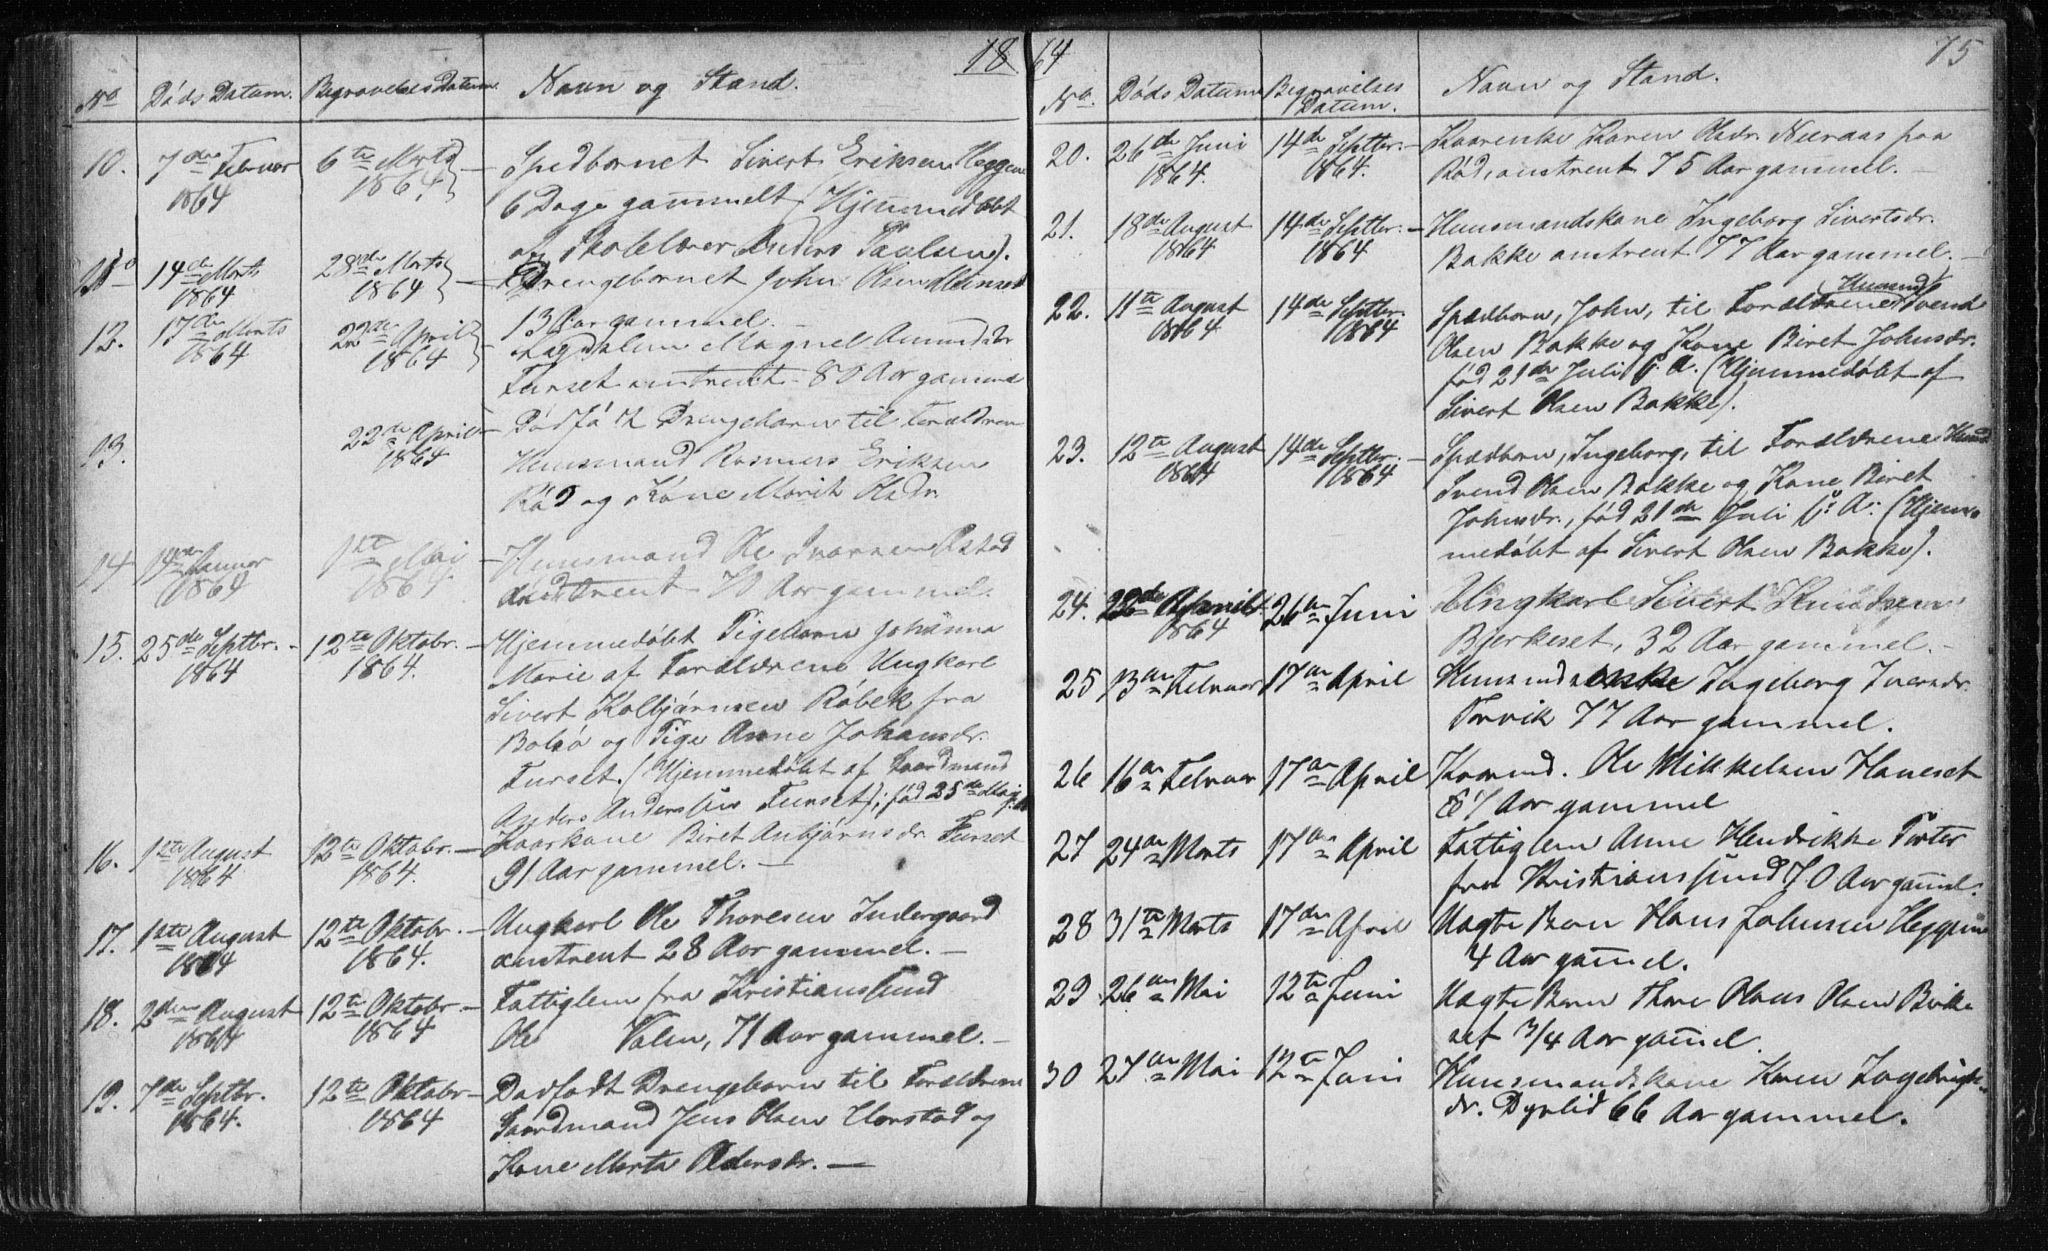 1864
No Døds Datum. Begravelses Datum. Navn og Stand.
10. 7de Februar 1864 6te Marts 1864 Spedbarnet Sivert Eriksen Heggem
6 Dage gammelt (Hjemmedøbt
af Skolelærer Anders Paulsen).
14de Marts 1864 28de Marts 1864 Drengebarnet John Olsen
13 Aar gammel.
12. 17de Marts 1864 22de April 1864 Magnel Amundsdr
Furset omtrent 80 Aar gammel
13. 22de April 1864 Dødfødt Drengebarn til Forældrene
Huusmand Rasmus Eriksen
Rød og Kone Marit Olsdr.
14 Januar 1864 1ste Mai 1864. Huusmand Ole Ivarsen
omtrent 70 Aar gammel.
15. 25de Septbr. 1864 12te Oktobr. 1864. Hjemmedøbt Pigebarn Johanna
Marie af Forældrene Ungkarl
Sivert Kolbjørnsen Røbek fra
Bolsø og Pige Anne Johansdr.
Furset. (Hjemmedøbt af Gaardmand
Anders Anderssen Furset); fød 25de Mai
16. 1ste August 1864 12te Oktobr. 1864. Kaarkone Biret Anbjørnsdr Furset
91 Aar gammel.
17. 1ste August 1864 12te Oktobr. 1864. Ungkarl Ole Thoresen Indergaard
omtrent 28 Aar gammel.
18. 2den August 1864 12te Oktobr 1864 Fattiglem fra Kristianssund
Ole Valen, 71 Aar gammel.
19. 7de Septbr. 1864. 12te Oktobr 1864 Dødfødt Drengebarn til Forældrene
Gaardmand Jens Olsen Horstad og
Kone Marta Pedersdr.
75
No. Døds Datum Begravelses Datum. Navn og Stand.
20. 26de Juni 1864. 14de Septbr. 1864. Kaarenke Karen Olsdr. Neeraas paa
Rød, omtrent 75 Aar gammel.
21. 18de August 1864 14de Septbr. 1864 Huusmandskone Ingeborg Sivertsdr.
Bakke omtrent 77 Aar gammel.
22. 11te August 1864 14de Septbr. 1864 Spædbarn, John, til Forældrene Huusmd Svend
Olsen Bakke og Kone Biret Johnsdr.
fød 21de Juli s. A. (Hjemmedøbt af
Sivert Olsen Bakke).
23. 12te August 1864 14de Septbr. 1864 Spædbarn, Ingeborg, til Forældrene Huusmd
Svend Olsen Bakke og Kone Biret
Johnsdr., fød 21de Juli s. A. (Hjem-
medøbt af Sivert Olsen Bakke).
24. 22de April 1864 26de Juni Ungkarl Sivert Knudsen
Bjerkeset, 32 Aar gammel.
25 13de Februar 17de April Huusmdsenke Ingeborg Iversdr.
Torvik 77 Aar gammel.
26 16de Februar 17de April Kaarmd. Ole Mikkelsen Haneset
81 Aar gammel
27 24de Marts 17de April Fattiglem Anne Hendrikke Porter
fra Kristianssund 70 Aar gammel.
28 31te Marts 17de April Uægte Barn Hans Johnsen Heggem
4 Aar gammel.
29 26de Mai 12te Juni Uægte Barn Thore Olaus Olsen Birke
set 3/4 Aar gammel.
30 27de Mai 12te Juni Huusmandskone Karen Ingebrigts-
dr. Dyrlid 66 Aar gammel.